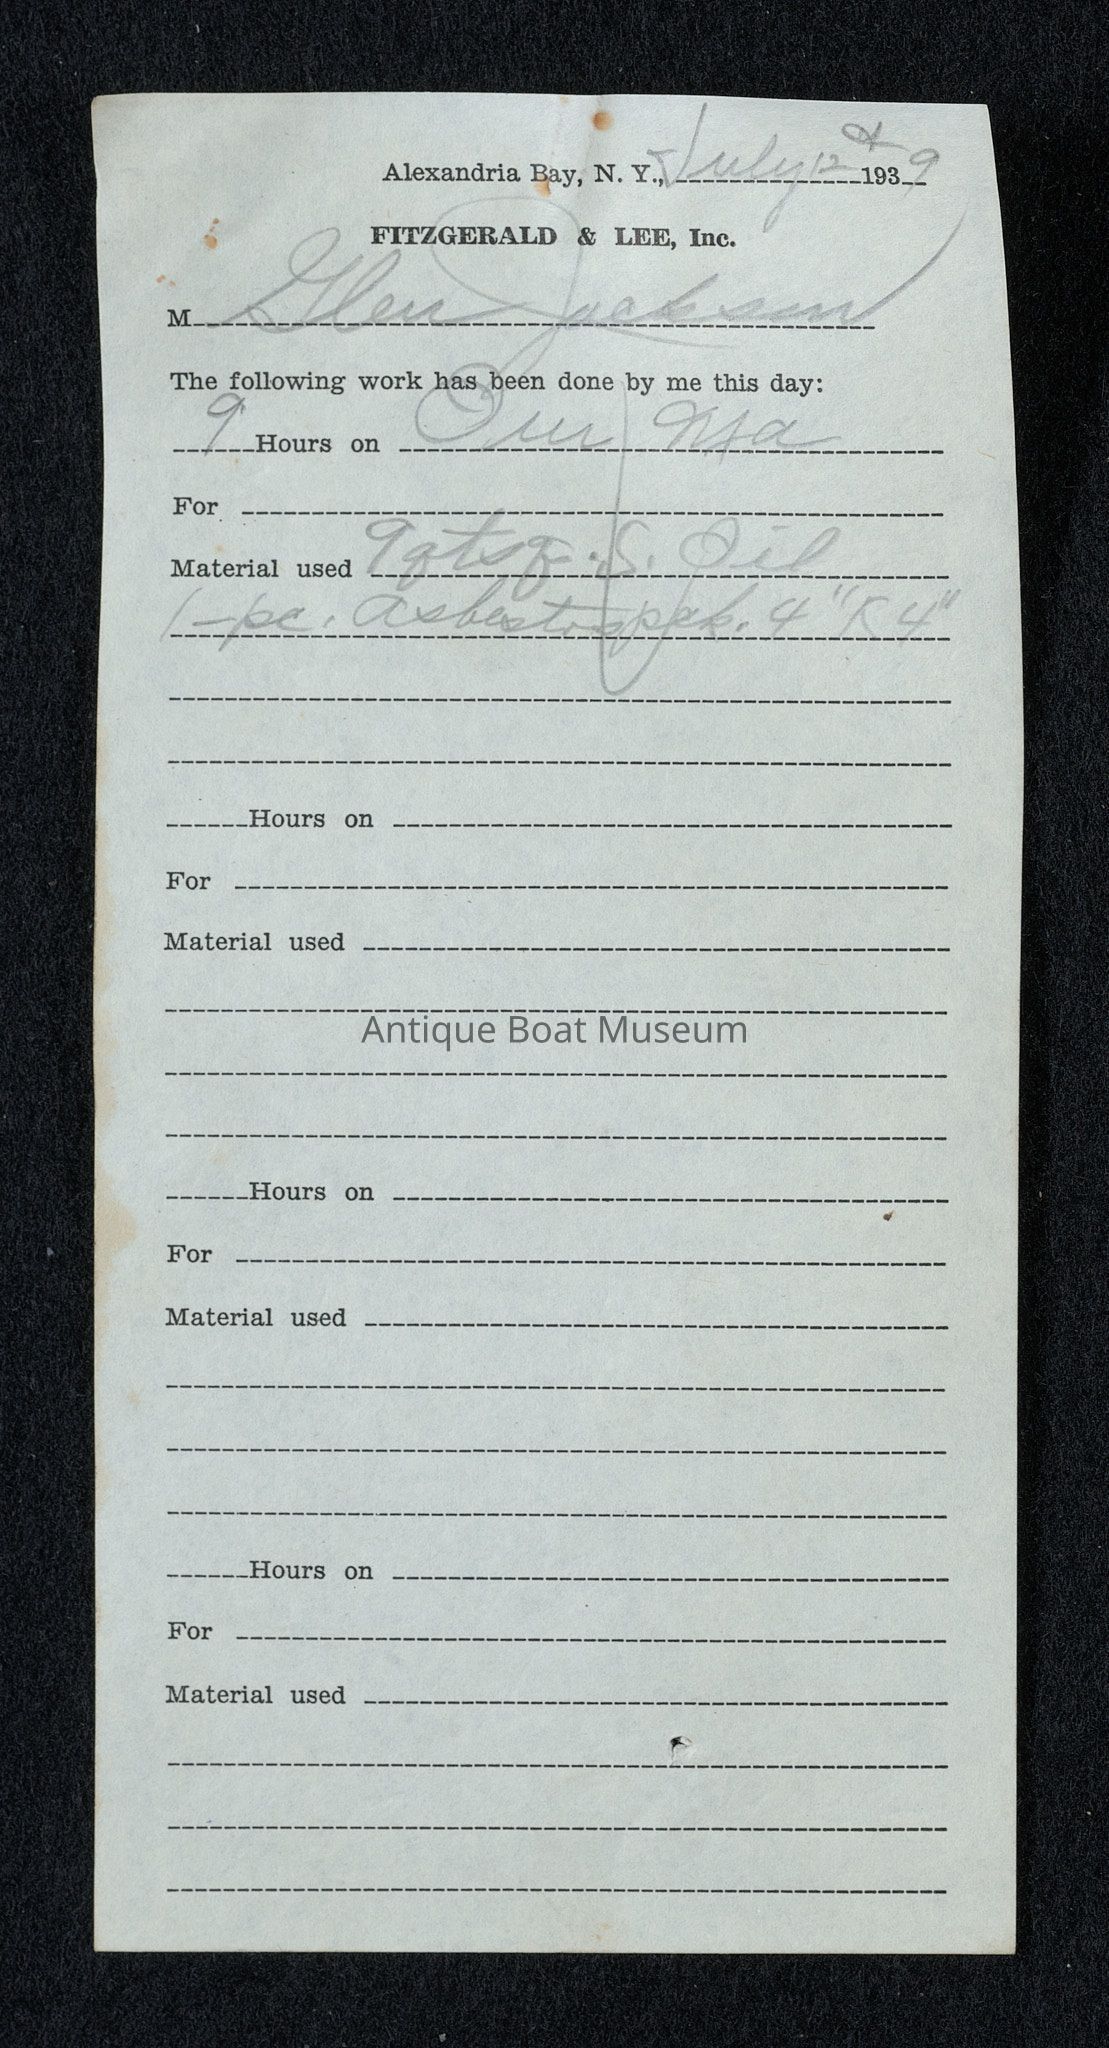 Alexandria Bay, N. Y., July 12th 1939
FITZGERALD & LEE, Inc.
M Glen Jackson
The following work has been done by me this day:
9 Hours on Our
For
Material used 9 qts S. Oil
1-pc. Asbestos pck. 4" X 4"
Hours on
For
Material used
Antique Boat Museum
Hours on
For
Material used
Hours on
For
Material used